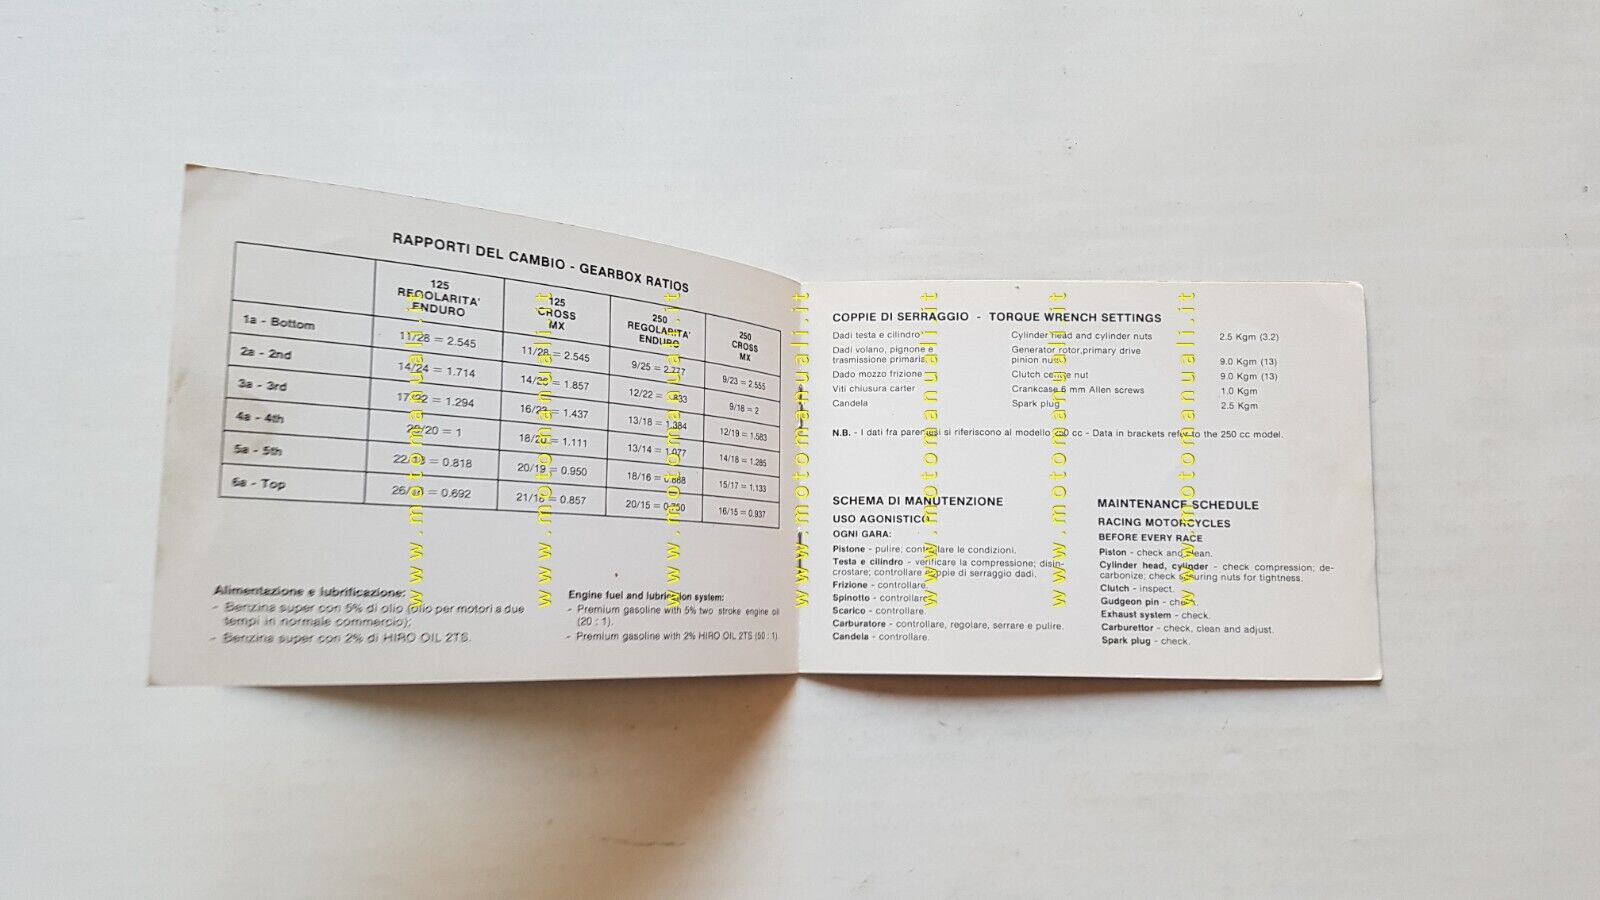 RAPPORTI DEL CAMBIO - GEARBOX RATIOS
125 REGOLARITA' ENDURO
125 CROSS MX
250 REGOLARITA' ENDURO
250 CROSS MX
1a - Bottom 11/28 = 2.545 11/28 = 2.545 9/25 = 2.777 9/23 = 2.555
2a - 2nd 14/24 = 1.714 14/26 = 1.857 12/22 = 1.833 9/18 = 2
3a - 3rd 17/22 = 1.294 16/23 = 1.437 13/18 = 1.384 12/19 = 1.583
4a - 4th 20/20 = 1 18/20 = 1.111 13/14 = 1.077 14/18 = 1.285
5a - 5th 22/18 = 0.818 20/19 = 0.950 18/16 = 0.888 15/17 = 1.133
6a - Top 26/18 = 0.692 21/18 = 0.857 20/15 = 0.750 16/15 = 0.937
Alimentazione e lubrificazione:
- Benzina super con 5% di olio (olio per motori a due
tempi in normale commercio);
- Benzina super con 2% di HIRO OIL 2TS.
Engine fuel and lubrication system:
- Premium gasoline with 5% two stroke engine oil
(20 : 1).
- Premium gasoline with 2% HIRO OIL 2TS (50 : 1).
COPPIE DI SERRAGGIO - TORQUE WRENCH SETTINGS
Dadi testa e cilindro Cylinder head and cylinder nuts 2.5 Kgm (3.2)
Dadi volano, pignone e Generator rotor, primary drive
trasmissione primaria pinion nuts 9.0 Kgm (13)
Dado mozzo frizione Clutch centre nut 9.0 Kgm (13)
Viti chiusura carter Crankcase 6 mm Allen screws 1.0 Kgm
Candela Spark plug 2.5 Kgm
N.B. - I dati fra parentesi si riferiscono al modello 250 cc - Data in brackets refer to the 250 cc model.
SCHEMA DI MANUTENZIONE
USO AGONISTICO
OGNI GARA:
Pistone - pulire; controllare le condizioni.
Testa e cilindro - verificare la compressione; disin-
crostare; controllare coppie di serraggio dadi.
Frizione - controllare.
Spinotto - controllare.
Scarico - controllare.
Carburatore - controllare, regolare, serrare e pulire.
Candela - controllare.
MAINTENANCE SCHEDULE
RACING MOTORCYCLES
BEFORE EVERY RACE
Piston - check and clean.
Cylinder head, cylinder - check compression; de-
carbonize; check securing nuts for tightness.
Clutch - inspect.
Gudgeon pin - check.
Exhaust system - check.
Carburettor - check, clean and adjust.
Spark plug - check.
www.motomanuali.it
www.motomanuali.it
www.motomanuali.it
www.motomanuali.it
www.motomanuali.it
www.motomanuali.it
www.motomanuali.it